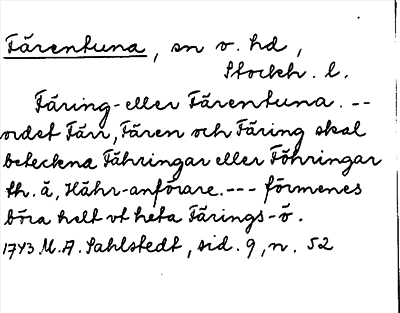 Färentuna, sn o. hd,
Stockh. l.
Färing- eller Färentuna. --
ordet Färr, Fären och Färing skal
beteckna Fähringar eller Föhringar
th. ä, Hähr-anförare. --- förmenes
böra helt ut heta Färings-ö.
1743 M. A. Sahlstedt, sid. 9, n. 52